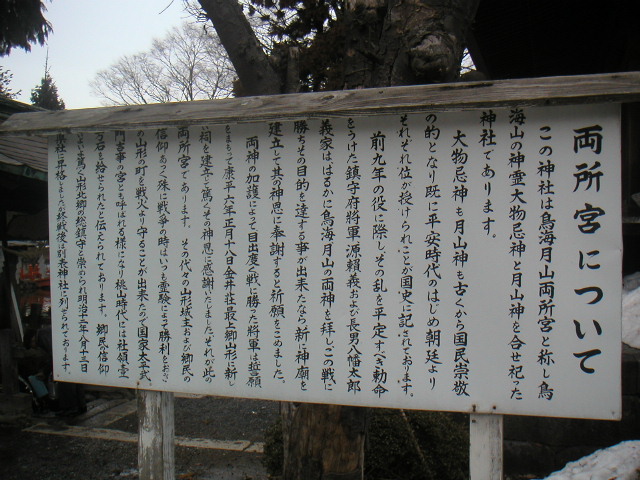 両所宮について
この神社は鳥海月山両所宮と称し鳥
海山の神霊大物忌神と月山神を合せ祀った
神社であります。
大物忌神も月山神も古くから国民崇敬
の的となり既に平安時代のはじめ朝廷より
それぞれ位が授けられことが国史に記されております。
前九年の役に際しその乱を平定すべき勅命
をうけた鎮守府将軍源頼義および長男八幡太郎
義家ははるかに鳥海月山の両神を拝しこの戦に
勝ちその目的を達する事が出来たなら新に神廟を
建立して其の神恩に奉謝すると祈願をこめました。
両神の加護によって目出度く戦に勝った将軍は報願
を以って康平六年正月十八日金井荘最上郷山形に新し
祠を建立て篤くその神恩に感謝いたしましたそれが此の
両所宮であります。その代々の山形城主および郷民の
信仰あつく殊に戦争の時はいつも霊験によって勝利をおさ
の山形の町を戦火より守ることが出来たので国家太平武
門吉事の宮とも呼ばれる様になり桃山時代には社領壱
石を給とられたと伝えられております。郷民信仰
まことに篤く山形北郷の総鎮守と崇められ明治十二年八月十三日
県社に昇格しましたが終戦後は別表神社に列せられております。